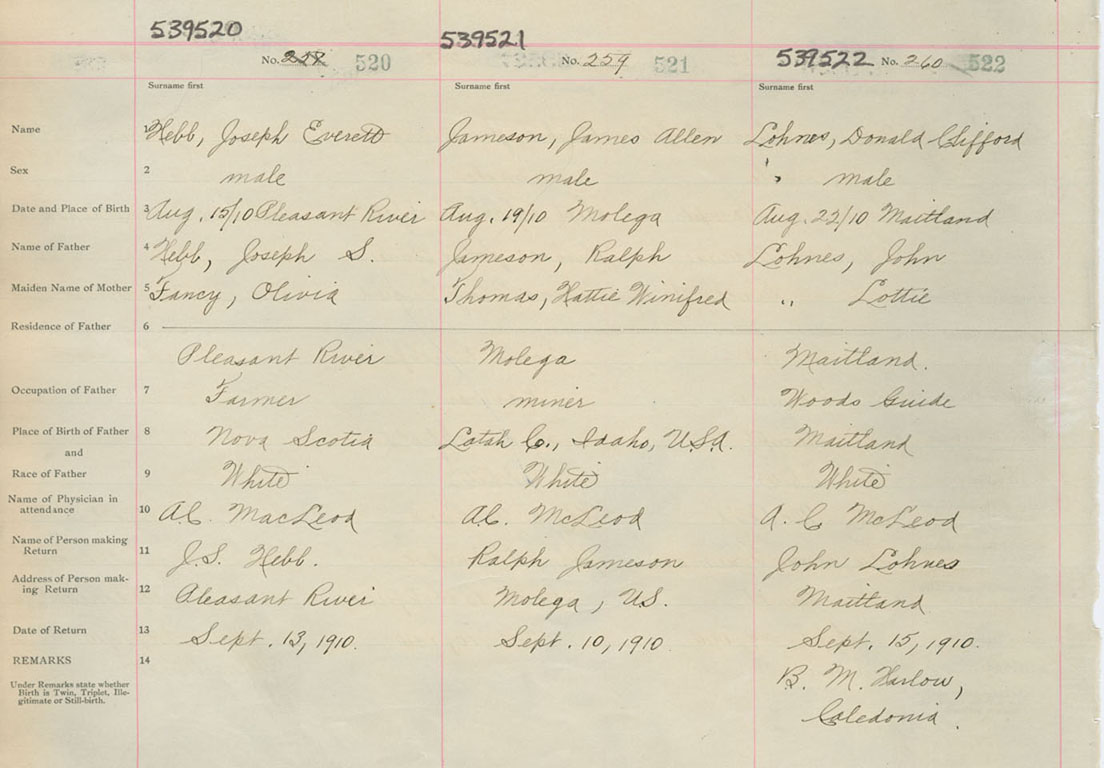 539520 539521
No. 258 520 No. 259 521 539522 No. 260 522
Surname first Surname first Surname first
Name 1 Hebb, Joseph Everett Jameson, James Allen Lohnes, Donald Clifford
Sex 2 male male " male
Date and Place of Birth 3 Aug. 15/10 Pleasant River Aug. 19/10 Molega Aug. 22/10 Maitland
Name of Father 4 Hebb, Joseph S. Jameson, Ralph Lohnes, John
Maiden Name of Mother 5 Fancy, Olivia Thomas, Hattie Winifred " Lottie
Residence of Father 6
Pleasant River Molega Maitland.
Occupation of Father 7 Farmer miner Woods Guide
Place of Birth of Father 8 Nova Scotia Latah Co., Idaho, U.S.A. Maitland
and
Race of Father 9 White White White
Name of Physician in
attendance 10 A.C. MacLeod A.C. McLeod A. C McLeod
Name of Person making
Return 11 J.S. Hebb. Ralph Jameson John Lohnes
Address of Person mak-
ing Return 12 Pleasant River Molega, NS. Maitland
Date of Return 13 Sept. 13, 1910. Sept. 10, 1910 Sept. 15, 1910.
REMARKS 14
Under Remarks state whether
Birth is Twin, Triplet, Ille-
gitimate or Still-birth.
B. M. Harlow,
Caledonia.